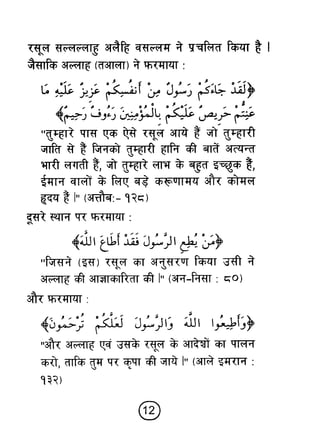 रसूल सल्लल्लाहु अलैहि वसल्लम ने प्रचलित किया है ।
जैसाकि अल्लाह (तआला) ने फरमाया :
﴿لقد جاءكم رسول من أنفسكم عزيز عليه ما
عنتم حريص عليكم بالمؤمنين رءوف رحيم﴾
"तुम्हारे पास एक ऐसे रसूल आये हैं जो तुम्हारी
जाति से हैं जिनको तुम्हारी हानि की बातें अत्यन्त
भारी लगती हैं, जो तुम्हारे लाभ के बहुत इच्छुक हैं,
ईमान वालों के लिए बड़े करूणामय और कोमल
हृदय हैं ।" (अत्तौबः- १२८)
दूसरे स्थान पर फरमाया :
﴿من يطع الرسول فقد أطاع الله﴾
"जिसने (इस) रसूल का अनुसरण किया उसी ने
अल्लाह की आज्ञाकारिता की ।" (अन-निसा : ८०)
और फरमाया :
﴿وأطيعوا الله والرسول لعلكم ترحمون﴾
"और अल्लाह एवं उसके रसूल के आदेशों का पालन
करो, ताकि तुम पर कृपा की जाये ।" (आले इमरान :
१३२)
12